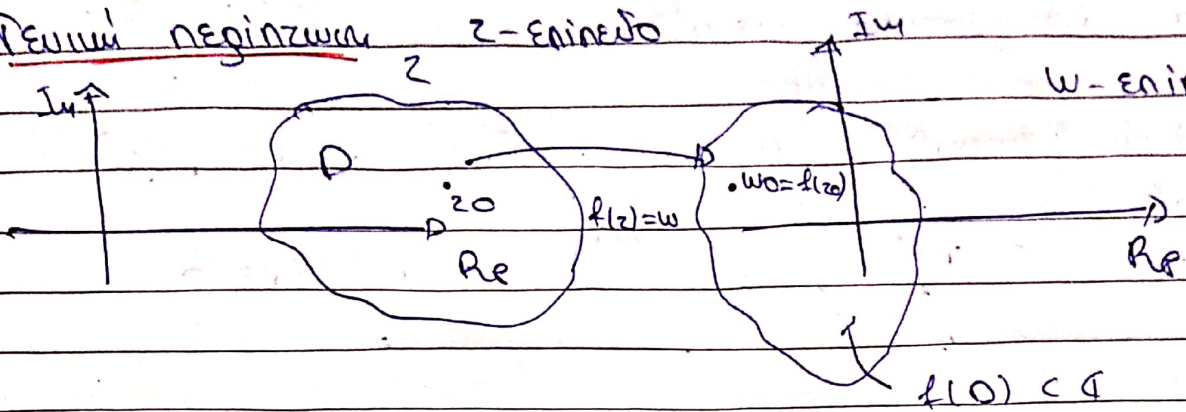 Γενική περίπτωση z-επίπεδο
Im z Im
w-επίπ
D
z0 f(z)=w w0=f(z0)
Re Re
f(D) ⊂ ℂ